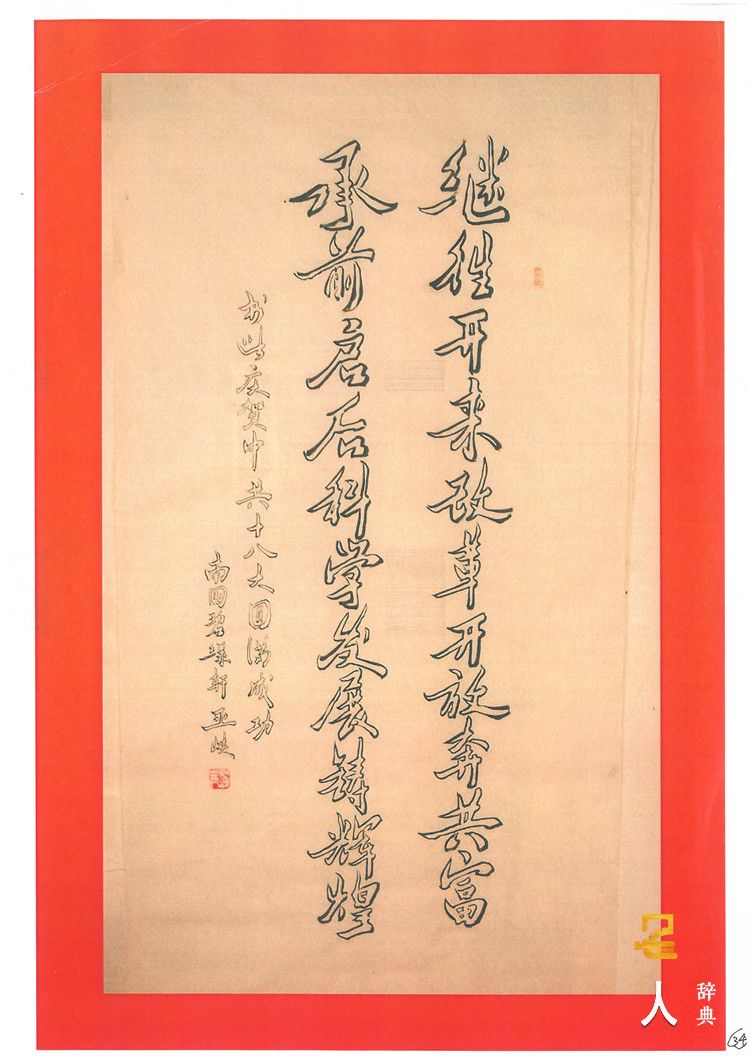 继往开来改革开放奔共富
承前启后科学发展铸辉煌
书此庆贺中共十八大圆满成功
南国碧绿轩
名人
辞典
34